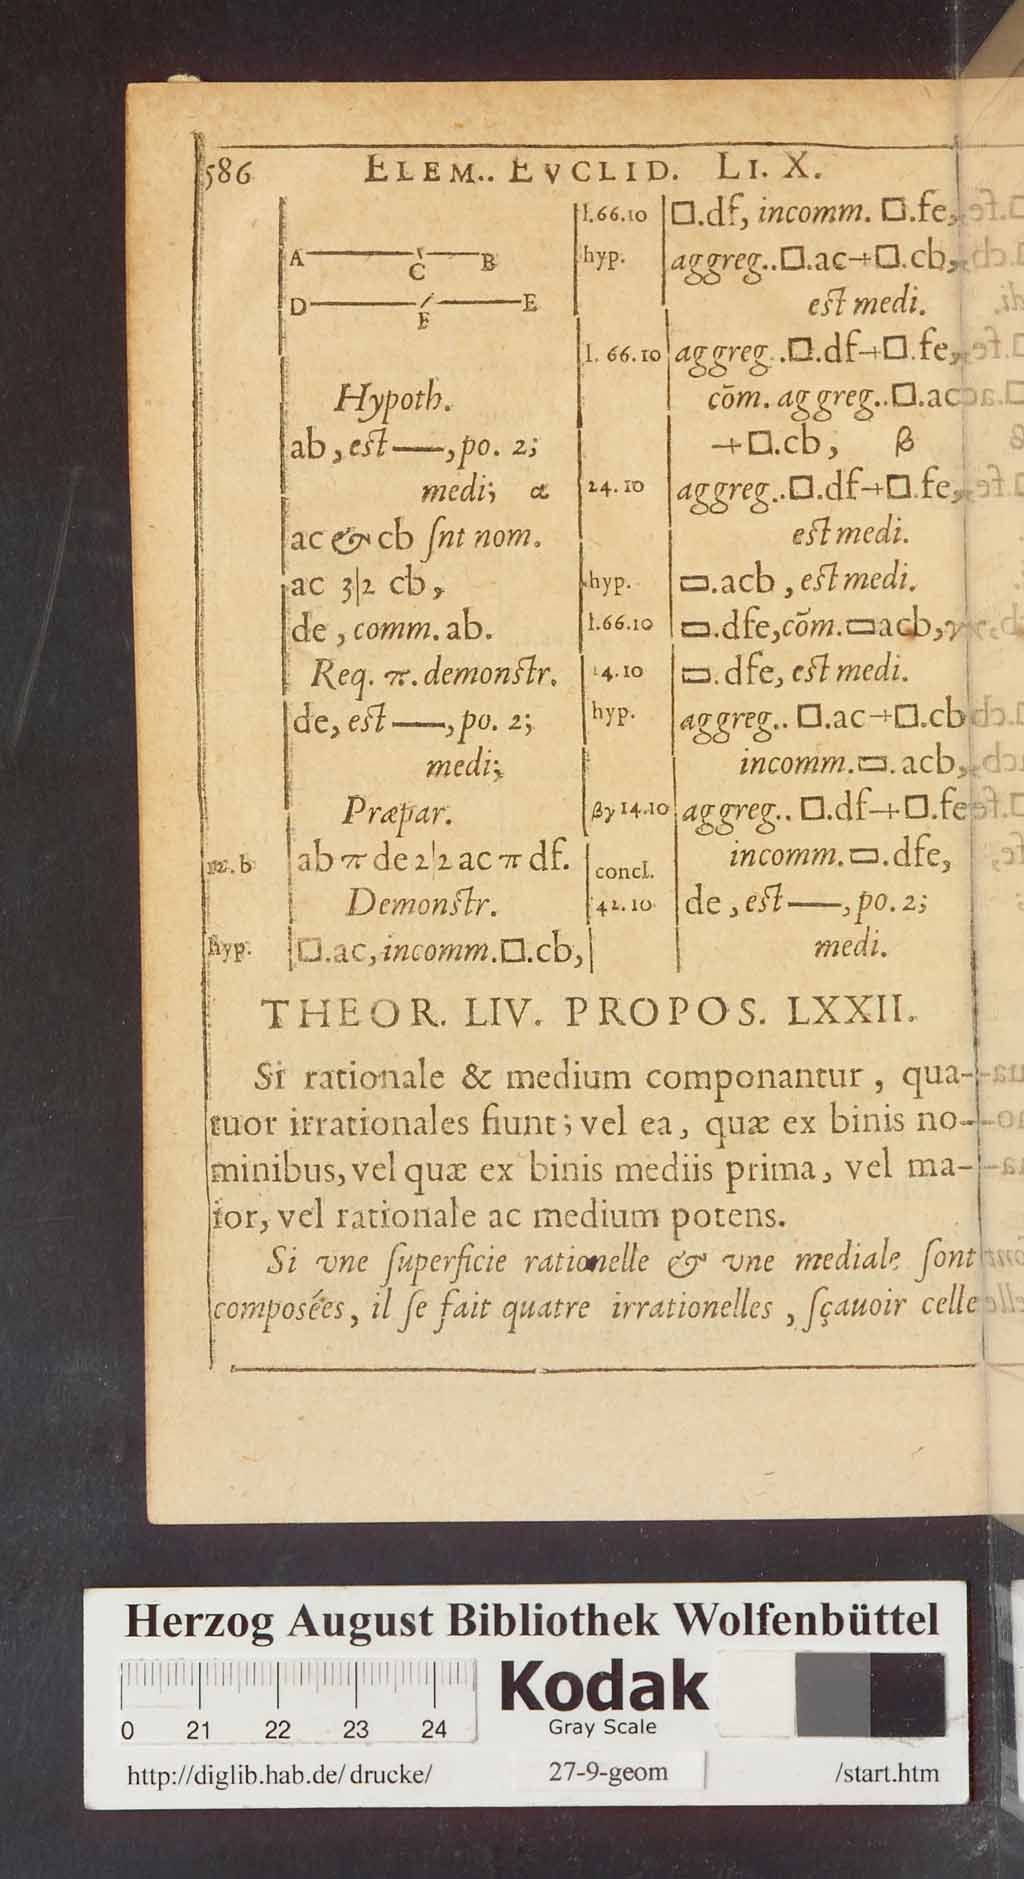 586 ELEM.. EVCLID. LI. X.
A C B
D F E
Hypoth.
ab, est ——, po. 2;
medi; α
ac & cb snt nom.
ac 3|2 cb,
de, comm. ab.
Req. π. demonstr.
de, est ——, po. 2;
medi;
Præpar.
ab π de 2|2 ac π df.
Demonstr.
hyp. □.ac, incomm. □.cb,
1.66.10 □.df, incomm. □.fe,
hyp. aggreg.. □.ac+□.cb,
est medi.
1. 66.10 aggreg. .□.df+□.fe,
cōm. aggreg..□.ac
+□.cb, β
24.10 aggreg..□.df+□.fe,
est medi.
hyp. ▭.acb, est medi.
1.66.10 ▭.dfe, cōm. ▭acb, γ
24.10 ▭.dfe, est medi.
hyp. aggreg.. □.ac+□.cb
incomm. ▭. acb,
βγ 14.10 aggreg.. □.df+□.fe
incomm. ▭.dfe,
concl.
42.10 de, est ——, po. 2;
medi.
THEOR. LIV. PROPOS. LXXII.
Si rationale & medium componantur, qua-
tuor irrationales fiunt; vel ea, quæ ex binis no-
minibus, vel quæ ex binis mediis prima, vel ma-
ior, vel rationale ac medium potens.
Si vne superficie rationelle & vne mediale sont
composées, il se fait quatre irrationelles, sçauoir celle
Herzog August Bibliothek Wolfenbüttel
0 21 22 23 24
Kodak
Gray Scale
http://diglib.hab.de/drucke/ 27-9-geom /start.htm